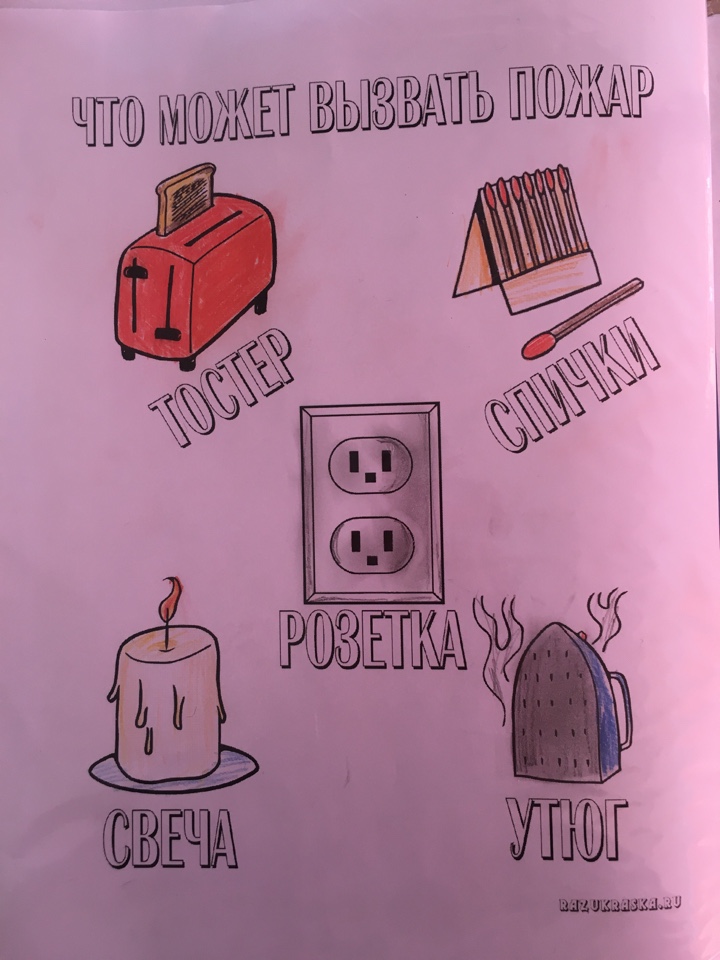 ЧТО МОЖЕТ ВЫЗВАТЬ ПОЖАР
ТОСТЕР
СПИЧКИ
РОЗЕТКА
СВЕЧА
УТЮГ
RAZUKRASKA.RU